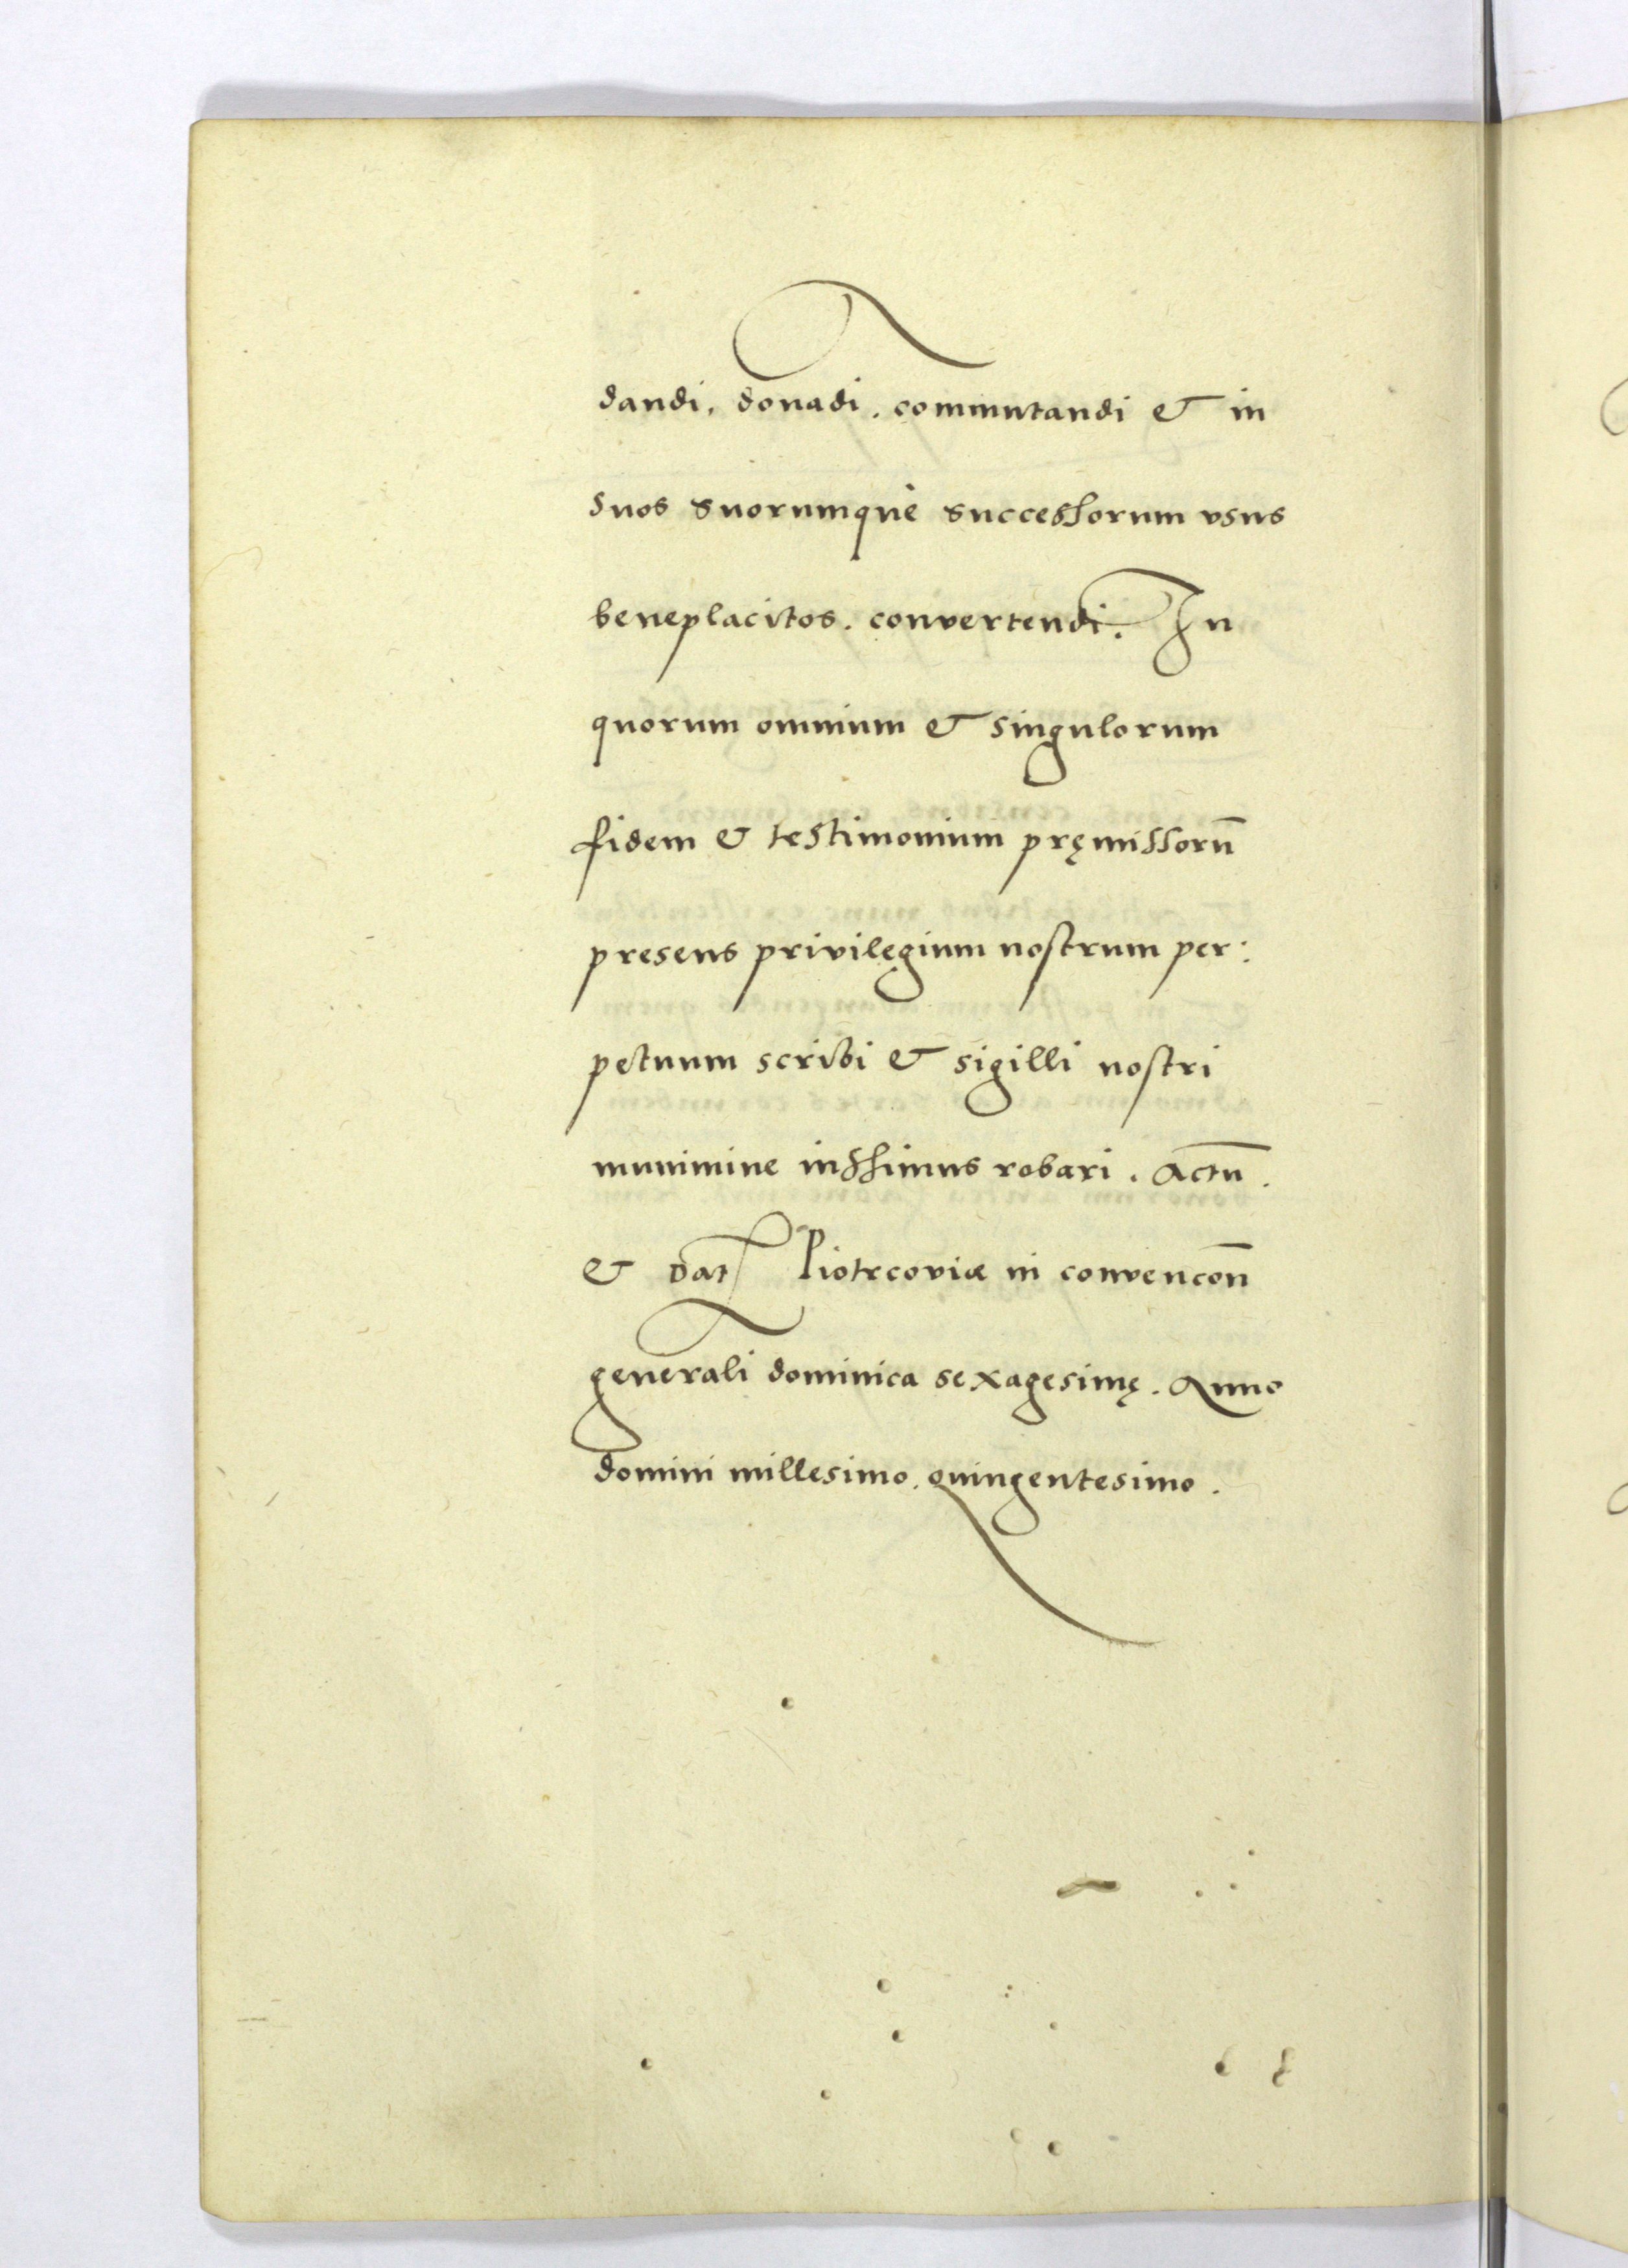 dandi, donādi. commutandi & in
suos suorumquè successorum vsus
beneplacitos. convertendi. In
quorum omnium & singulorum
fidem & testimonium pręmissorū
presens privilegium nostrum per:
petuum scribi & sigilli nostri
munimine iussimus robari. Actū.
& Dat Piotrcoviæ in convencōn
generali dominica sexagesimę. Anno
domini millesimo. quingentesimo.